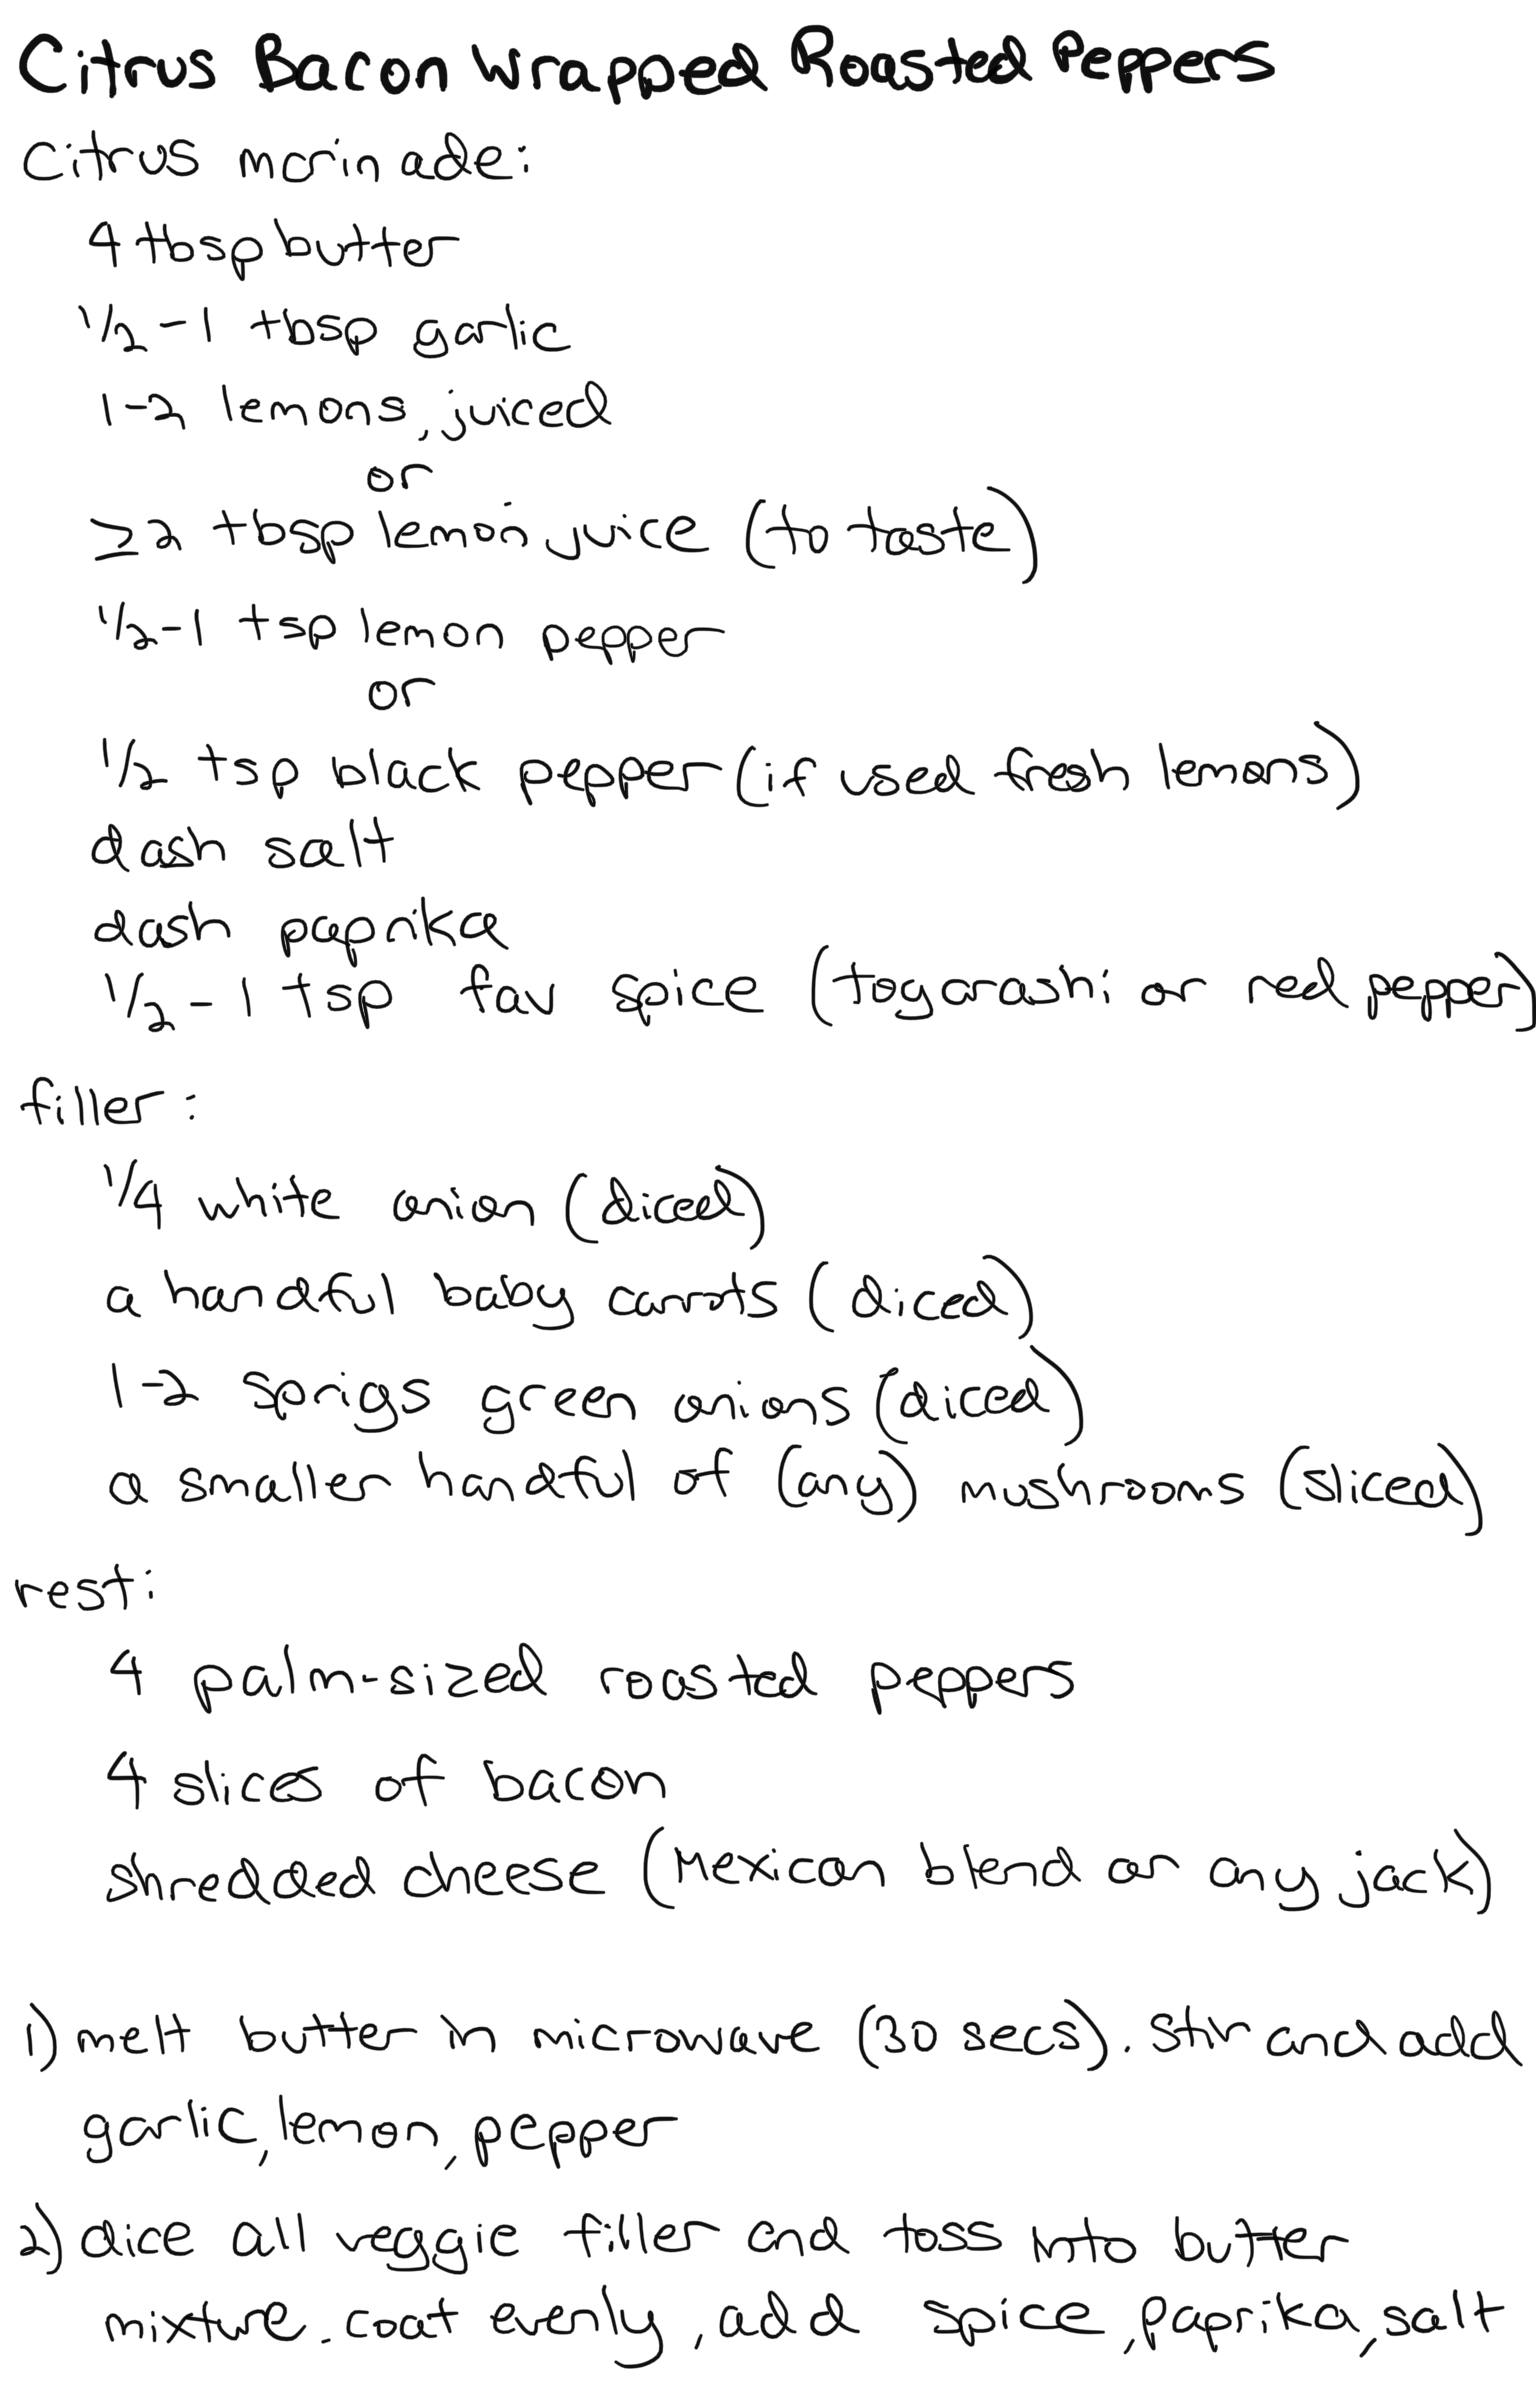 Citrus Bacon Wrapped Roasted Peppers
Citrus marinade:
4 tbsp butter
1/2-1 tbsp garlic
1-2 lemons, juiced
or
≥2 tbsp lemon juice (to taste)
1/2-1 tsp lemon pepper
or
1/2 tsp black pepper (if used fresh lemons)
dash salt
dash paprika
1/2-1 tsp fav spice (togarashi or red pepper)
filler:
1/4 white onion (diced)
a handful baby carrots (diced)
1-2 sprigs green onions (diced)
a smaller handful of (any) mushrooms (sliced)
rest:
4 palm-sized roasted peppers
4 slices of bacon
shredded cheese (Mexican blend or any jack)
1) melt butter in microwave (30 secs). Stir and add
garlic, lemon, pepper
2) dice all veggie filler and toss into butter
mixture. coat evenly, add spice, paprika, salt